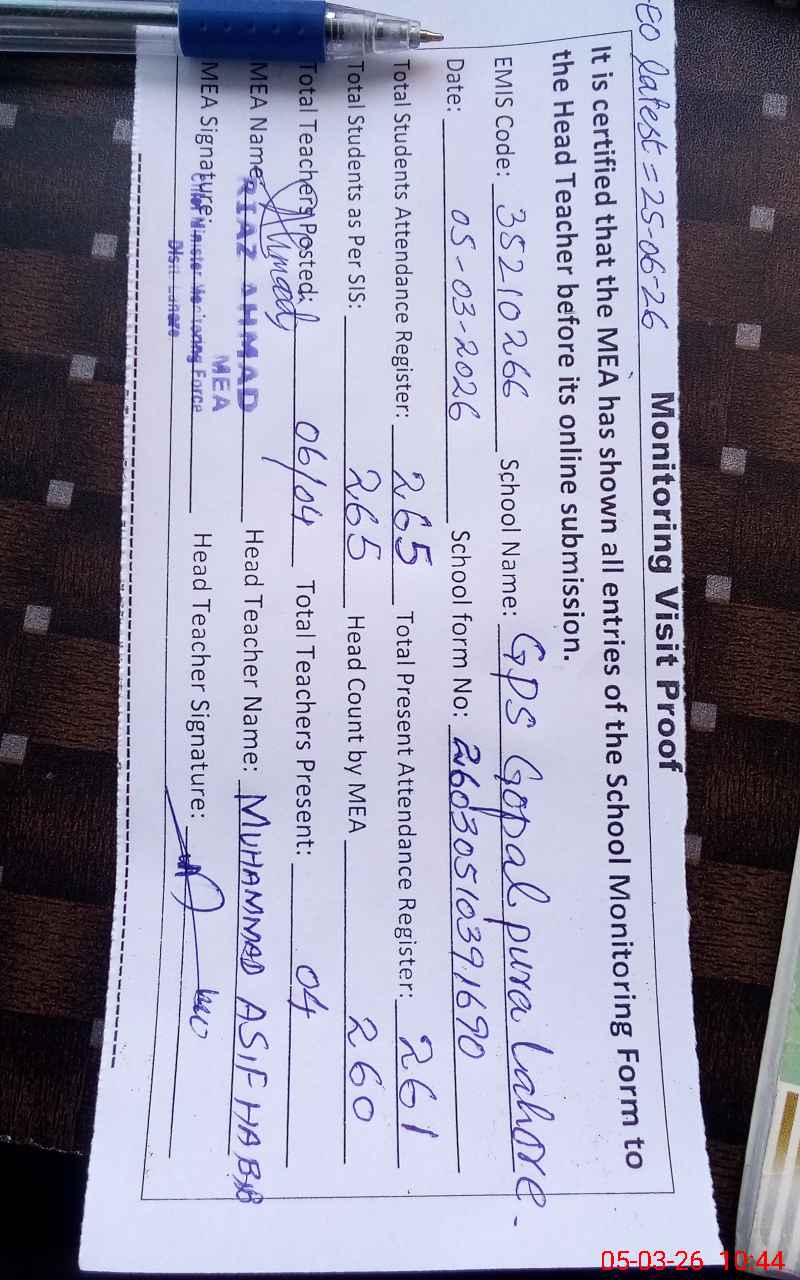 EO latest = 25-06-26
Monitoring Visit Proof
It is certified that the MEA has shown all entries of the School Monitoring Form to
the Head Teacher before its online submission.
EMIS Code: 35210266 School Name: GPS Gopal pura Lahore.
Date: 05-03-2026 School form No: 26030510391690
Total Students Attendance Register: 265 Total Present Attendance Register: 261
Total Students as Per SIS: 265 Head Count by MEA 260
Total Teachers Posted: 06/04 Total Teachers Present: 04
MEA Name: RIAZ AHMAD Head Teacher Name: MUHAMMAD ASIF HABIB
MEA
MEA Signature: Head Teacher Signature:
Chief Minister Monitoring Force
Distt: Lahore
05-03-26 10:44